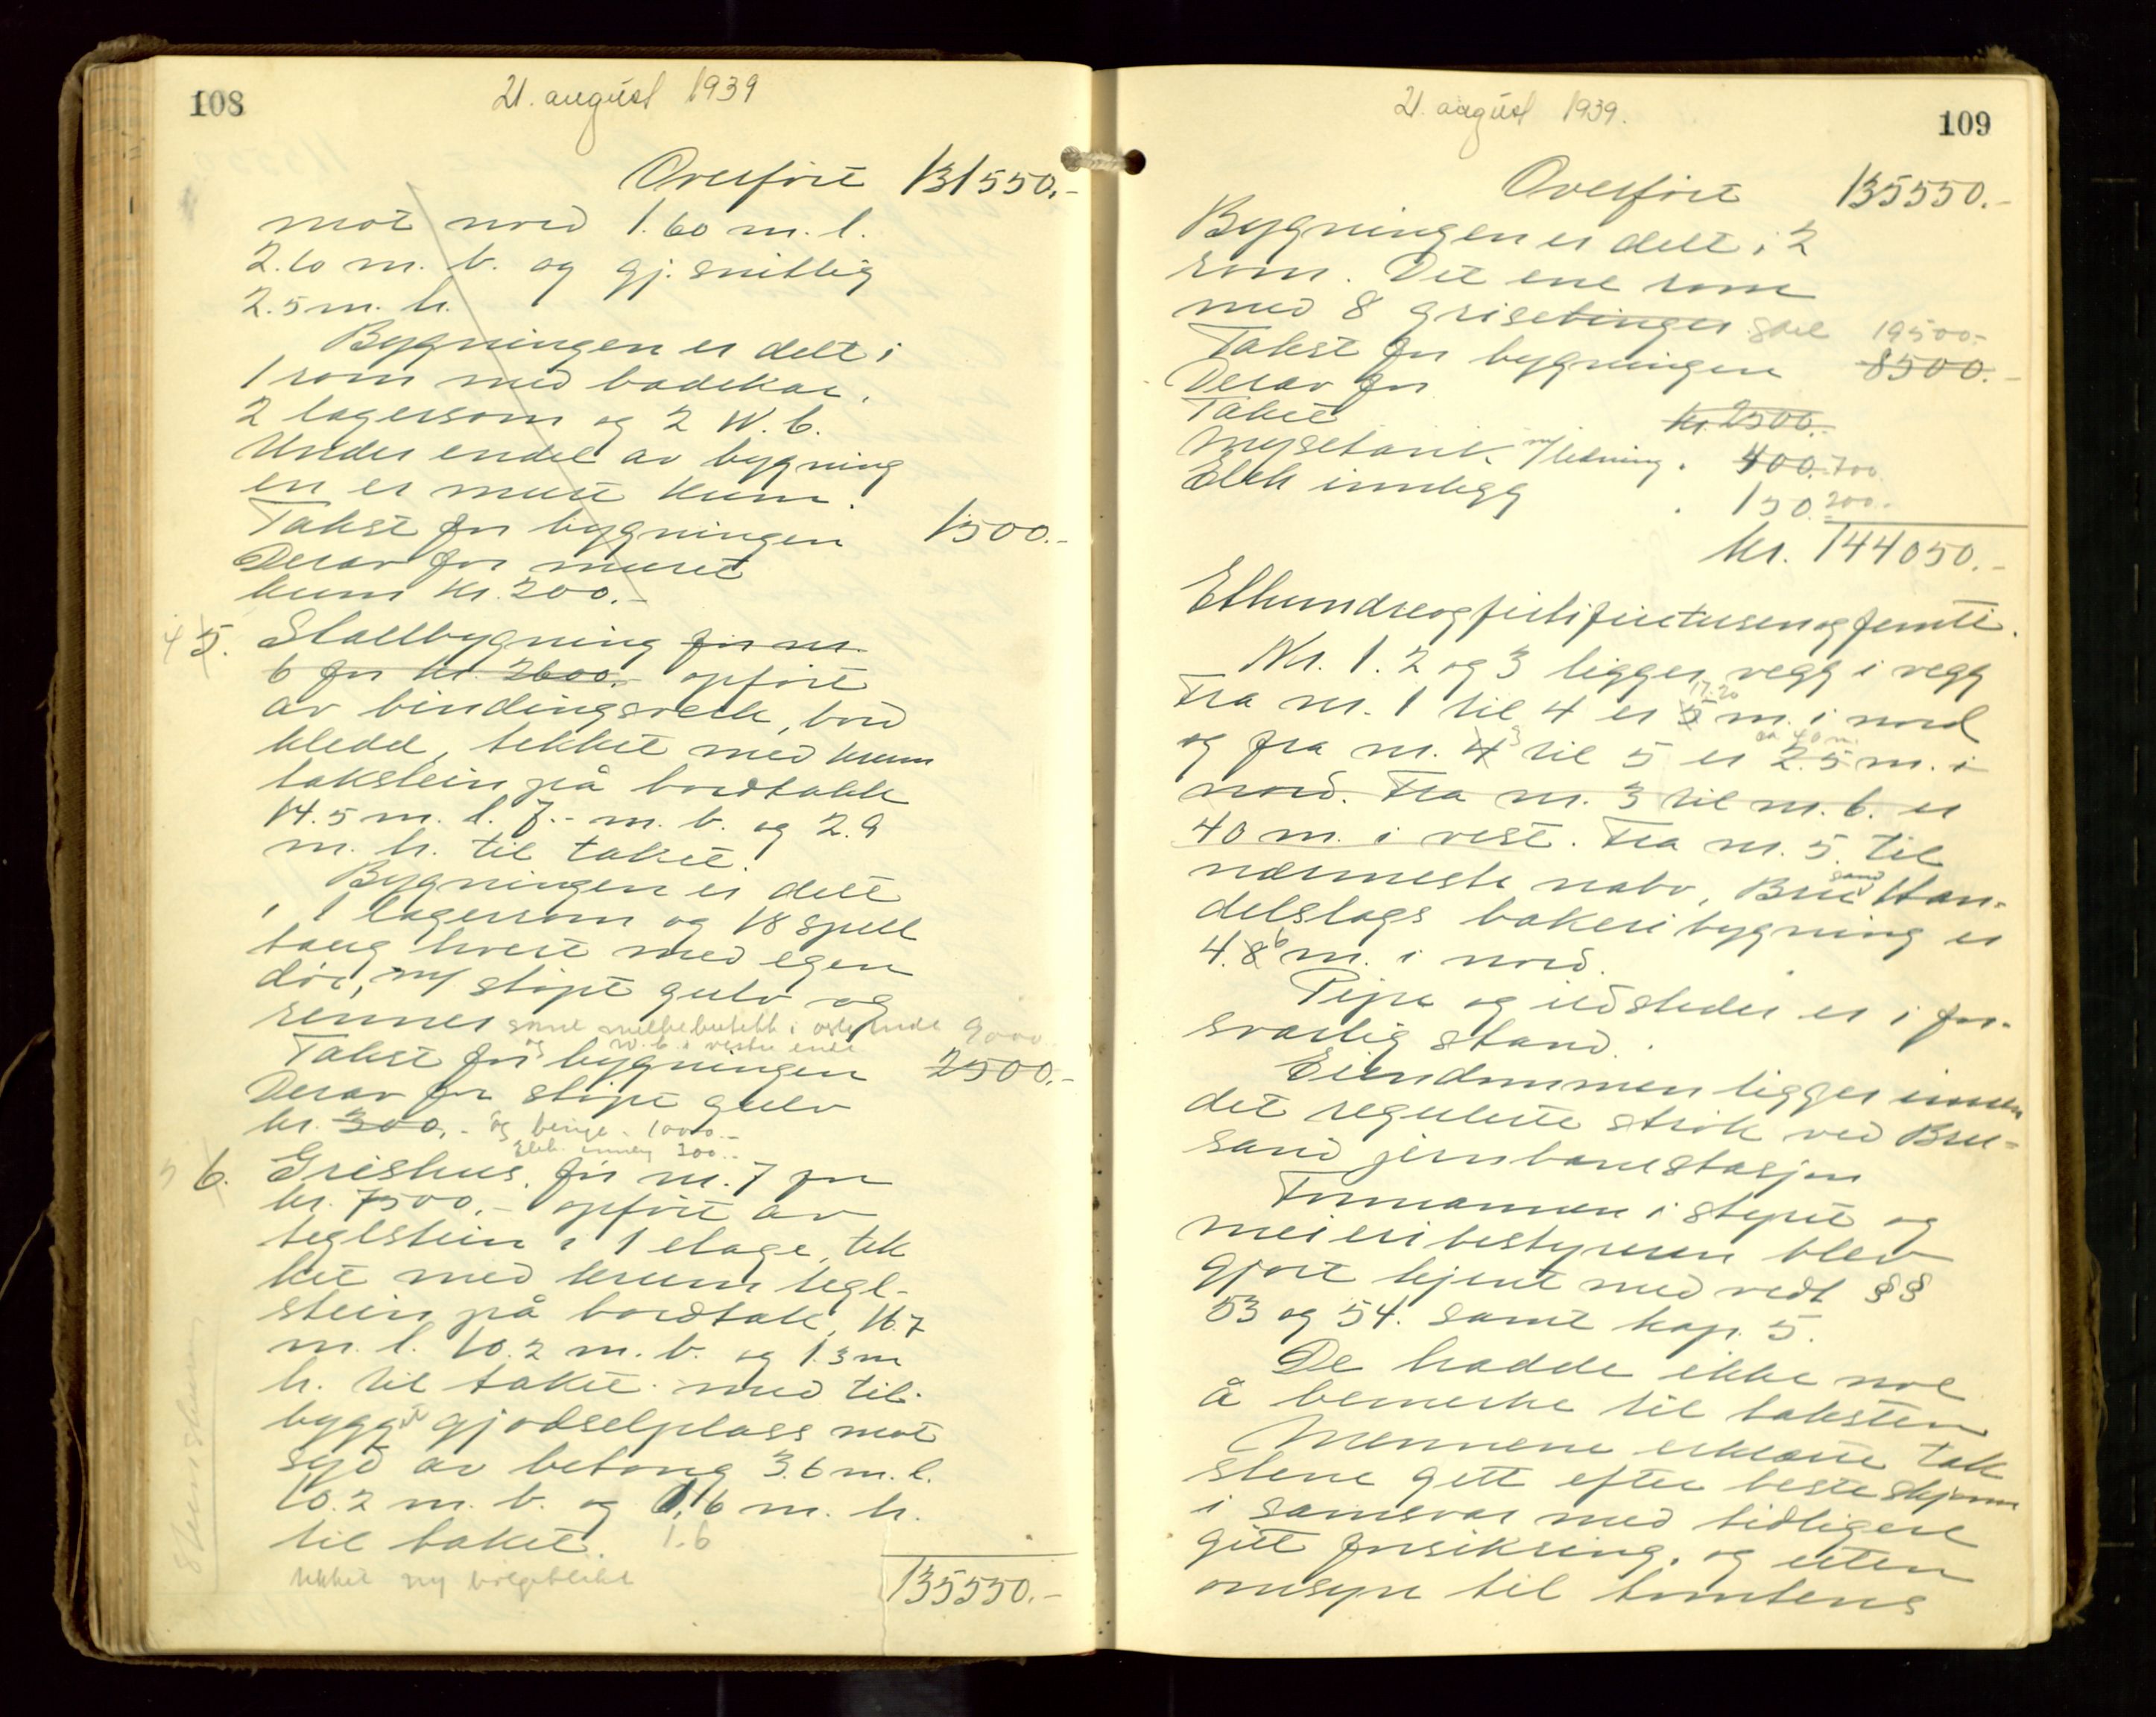 108
21. august 1939
Overført 131550.-
mot nord 1.60 m. l.
2.10 m. b. og gj. snittlig
2.5 m. h.
Bygningen er delt i
1 rom med badekar,
2 lagerrom og 2 W. C.
Under endel av bygning
en er muret kum.
Takst for bygningen 1500.-
Derav for muret
kum kr. 200.-
4 5. Stallbygning før nr.
6 for kr. 2600.- opført
av bindingsverk, bord
kledd, tekket med krum
takstein på bordtakk
14.5 m. l. 7.- m. b. og 2.9
m. h. til taket.
Bygningen er delt
i 1 lagerrom og 18 spell
taug hvert med egen
dør, m/ støpt gulv og
renner samt melkebutikk i østre ende 9000
og W. C. i vestre ende
Takst for bygningen 2500.-
Derav for støpt gulv
kr. 300.- og binge - 1000.-
Elek. innleg 300.-
5 6. Grishus, før nr. 7 for
kr. 7500.- opført av
teglstein i 1 etage, tek
ket med krum tegl-
stein på bordtakk, 16.7
m. l. 10.2 m. b. og 1.3 m
h. til taket. med til-
bygget gjødselplass mot
syd av betong 3.6 m. l.
10.2 m. b. og 1.6 m. h.
til taket. 1.6
tekket m/ bølgeblikk
135550.-
109
21. august 1939.
Overført 135550.-
Bygningen er delt i 2
rom. Det ene rom
med 8 grisebinger 19500.-
Takst for bygningen 8500.-
Derav for
Taket kr. 2500.-
Mysetank m/ledning . 400. 700.
Elek innlegg . 150. 200.-
kr. 144050.-
Etthundreogfirtifiretusenogfemti.
Nr. 1. 2 og 3 ligger vegg i vegg
17.20
Fra nr. 1 til 4 er 5 m. i nord
3 ca 40 m
og fra nr. 4 til 5 er 2.5 m. i
nord. Fra nr. 3 til nr. 6. er
40 m. i vest. Fra nr. 5. til
nærmeste nabo, Brusand Han-
delslags bakeribygning er
4.8 6 m. i nord.
Pipa og ildsteder er i for-
svarlig stand.
Eiendommen ligger innen
det regulerte strøk ved Bru-
sand jernbanestasjon
Formannen i styret og
meieribestyreren blev
gjort kjent med vedt §§
53 og 54. samt kap. 5.
De hadde ikke noe
å bemerke til taksten
Mennene erklærte tak
stene gitt efter beste skjønn
i samsvar med tidligere
gitt forsikring, og uten
omsyn til tomtens